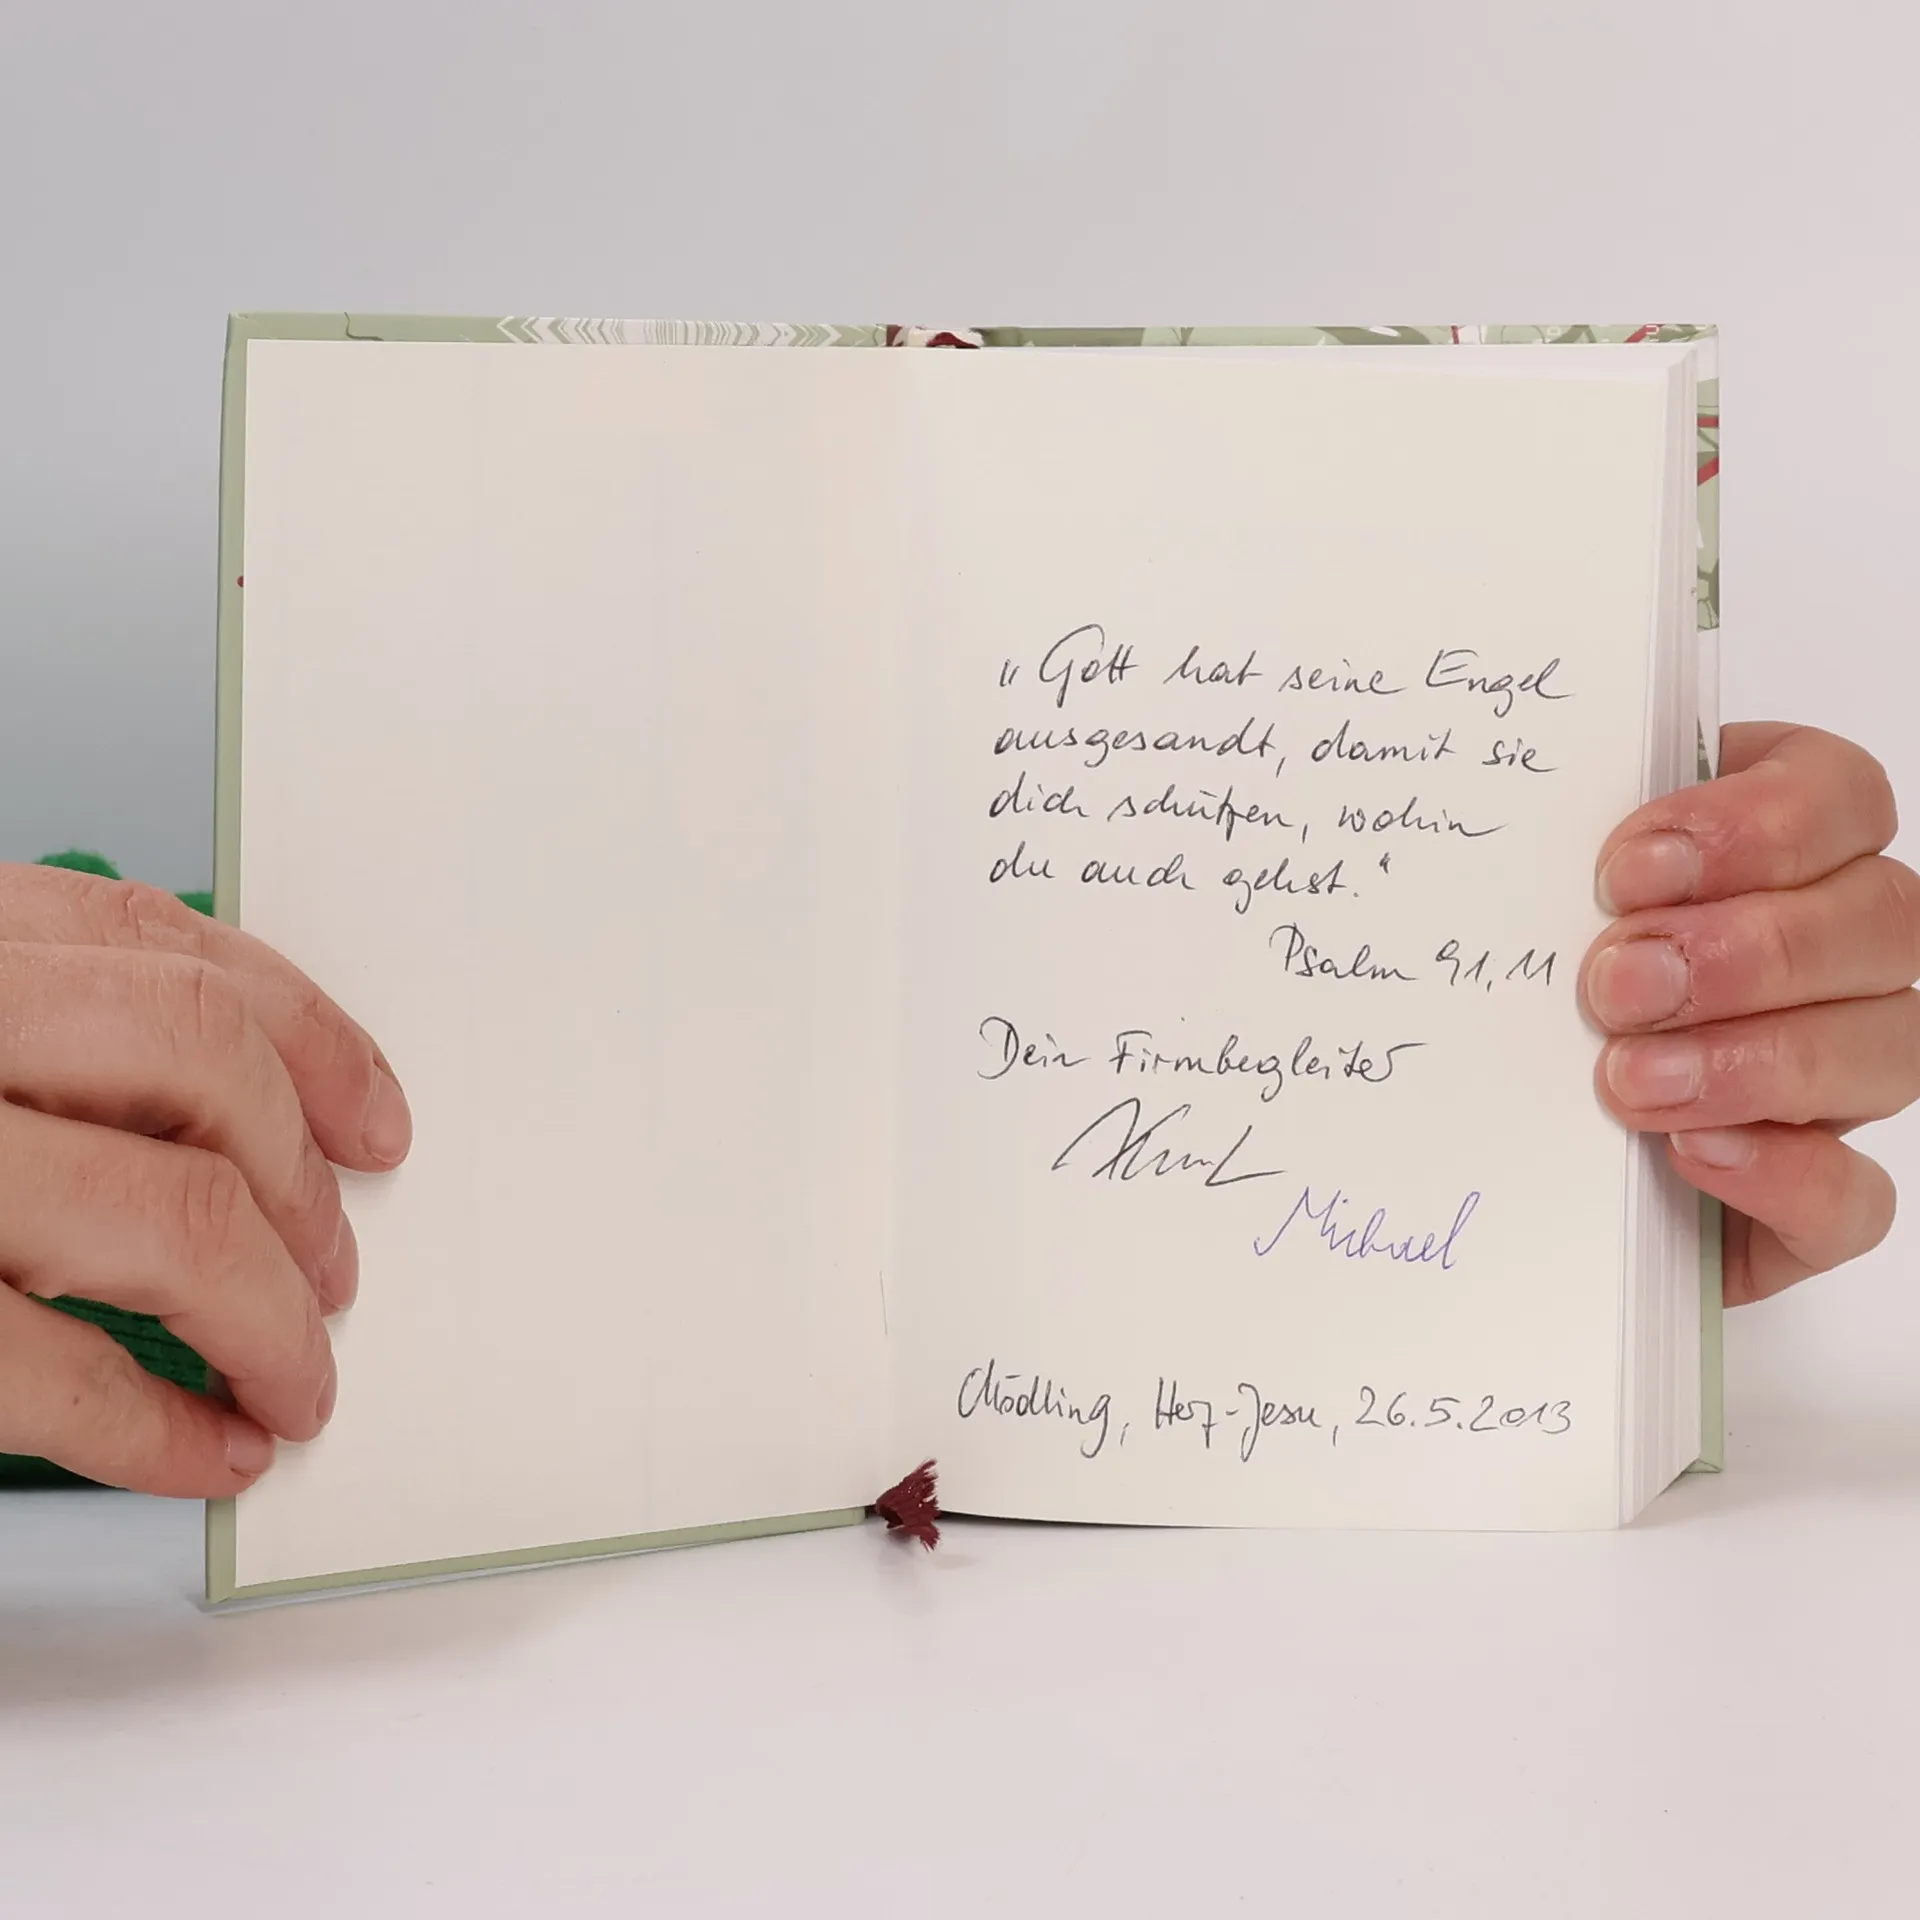 „Gott hat seine Engel
ausgesandt, damit sie
dich schützen, wohin
du auch gehst.“
Psalm 91,11
Dein Firmbegleiter
Michael
Mödling, Herz-Jesu, 26.5.2013